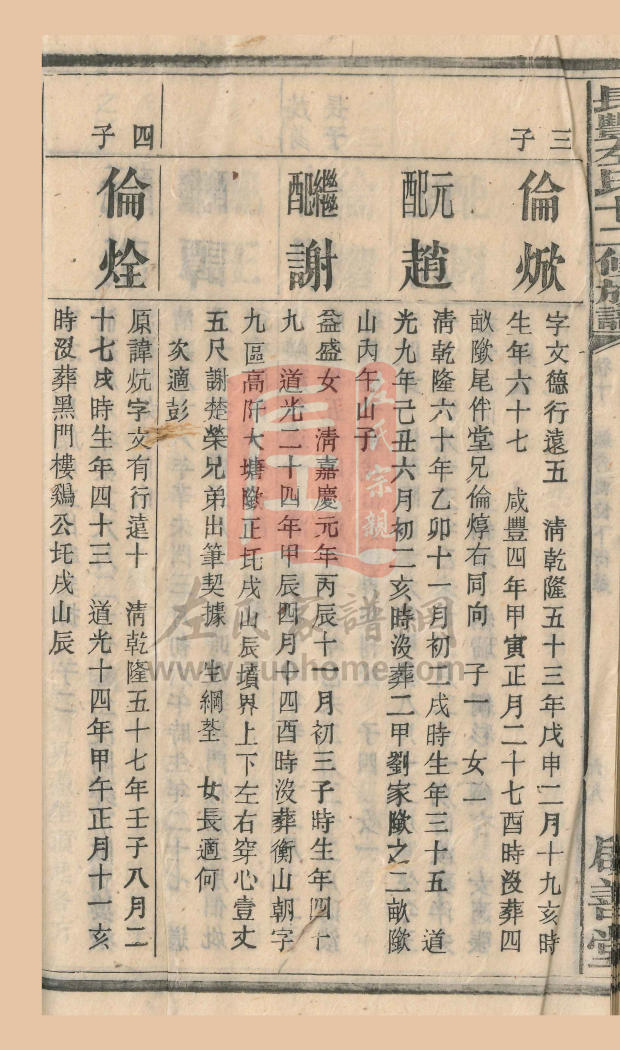 長豐左氏十二修族譜
啟善堂
三子
倫焮
字文德行遠五　清乾隆五十三年戊申二月十九亥時
生年六十七　咸豐四年甲寅正月二十七酉時沒葬四
畝隞尾伴堂兄倫焞右同向　子一　女一
元配
趙
清乾隆六十年乙卯十一月初二戌時生年三十五　道
光九年己丑六月初二亥時沒葬二甲劉家隞之二畝隞
山丙午山子
繼配
謝
益盛女　清嘉慶元年丙辰十一月初三子時生年四十
九　道光二十四年甲辰四月十四酉時沒葬衡山朝字
九區高阡大塘隞正圫戌山辰墳界上下左右穿心壹丈
五尺謝楚榮兄弟出筆契據　生綱荃　女長適何
次適彭
四子
倫烇
原諱炕字文有行遠十　清乾隆五十七年壬子八月二
十七戌時生年四十三　道光十四年甲午正月十一亥
時沒葬黑門樓鷄公圫戌山辰
左氏宗親
左氏家譜網
www.zuohome.com